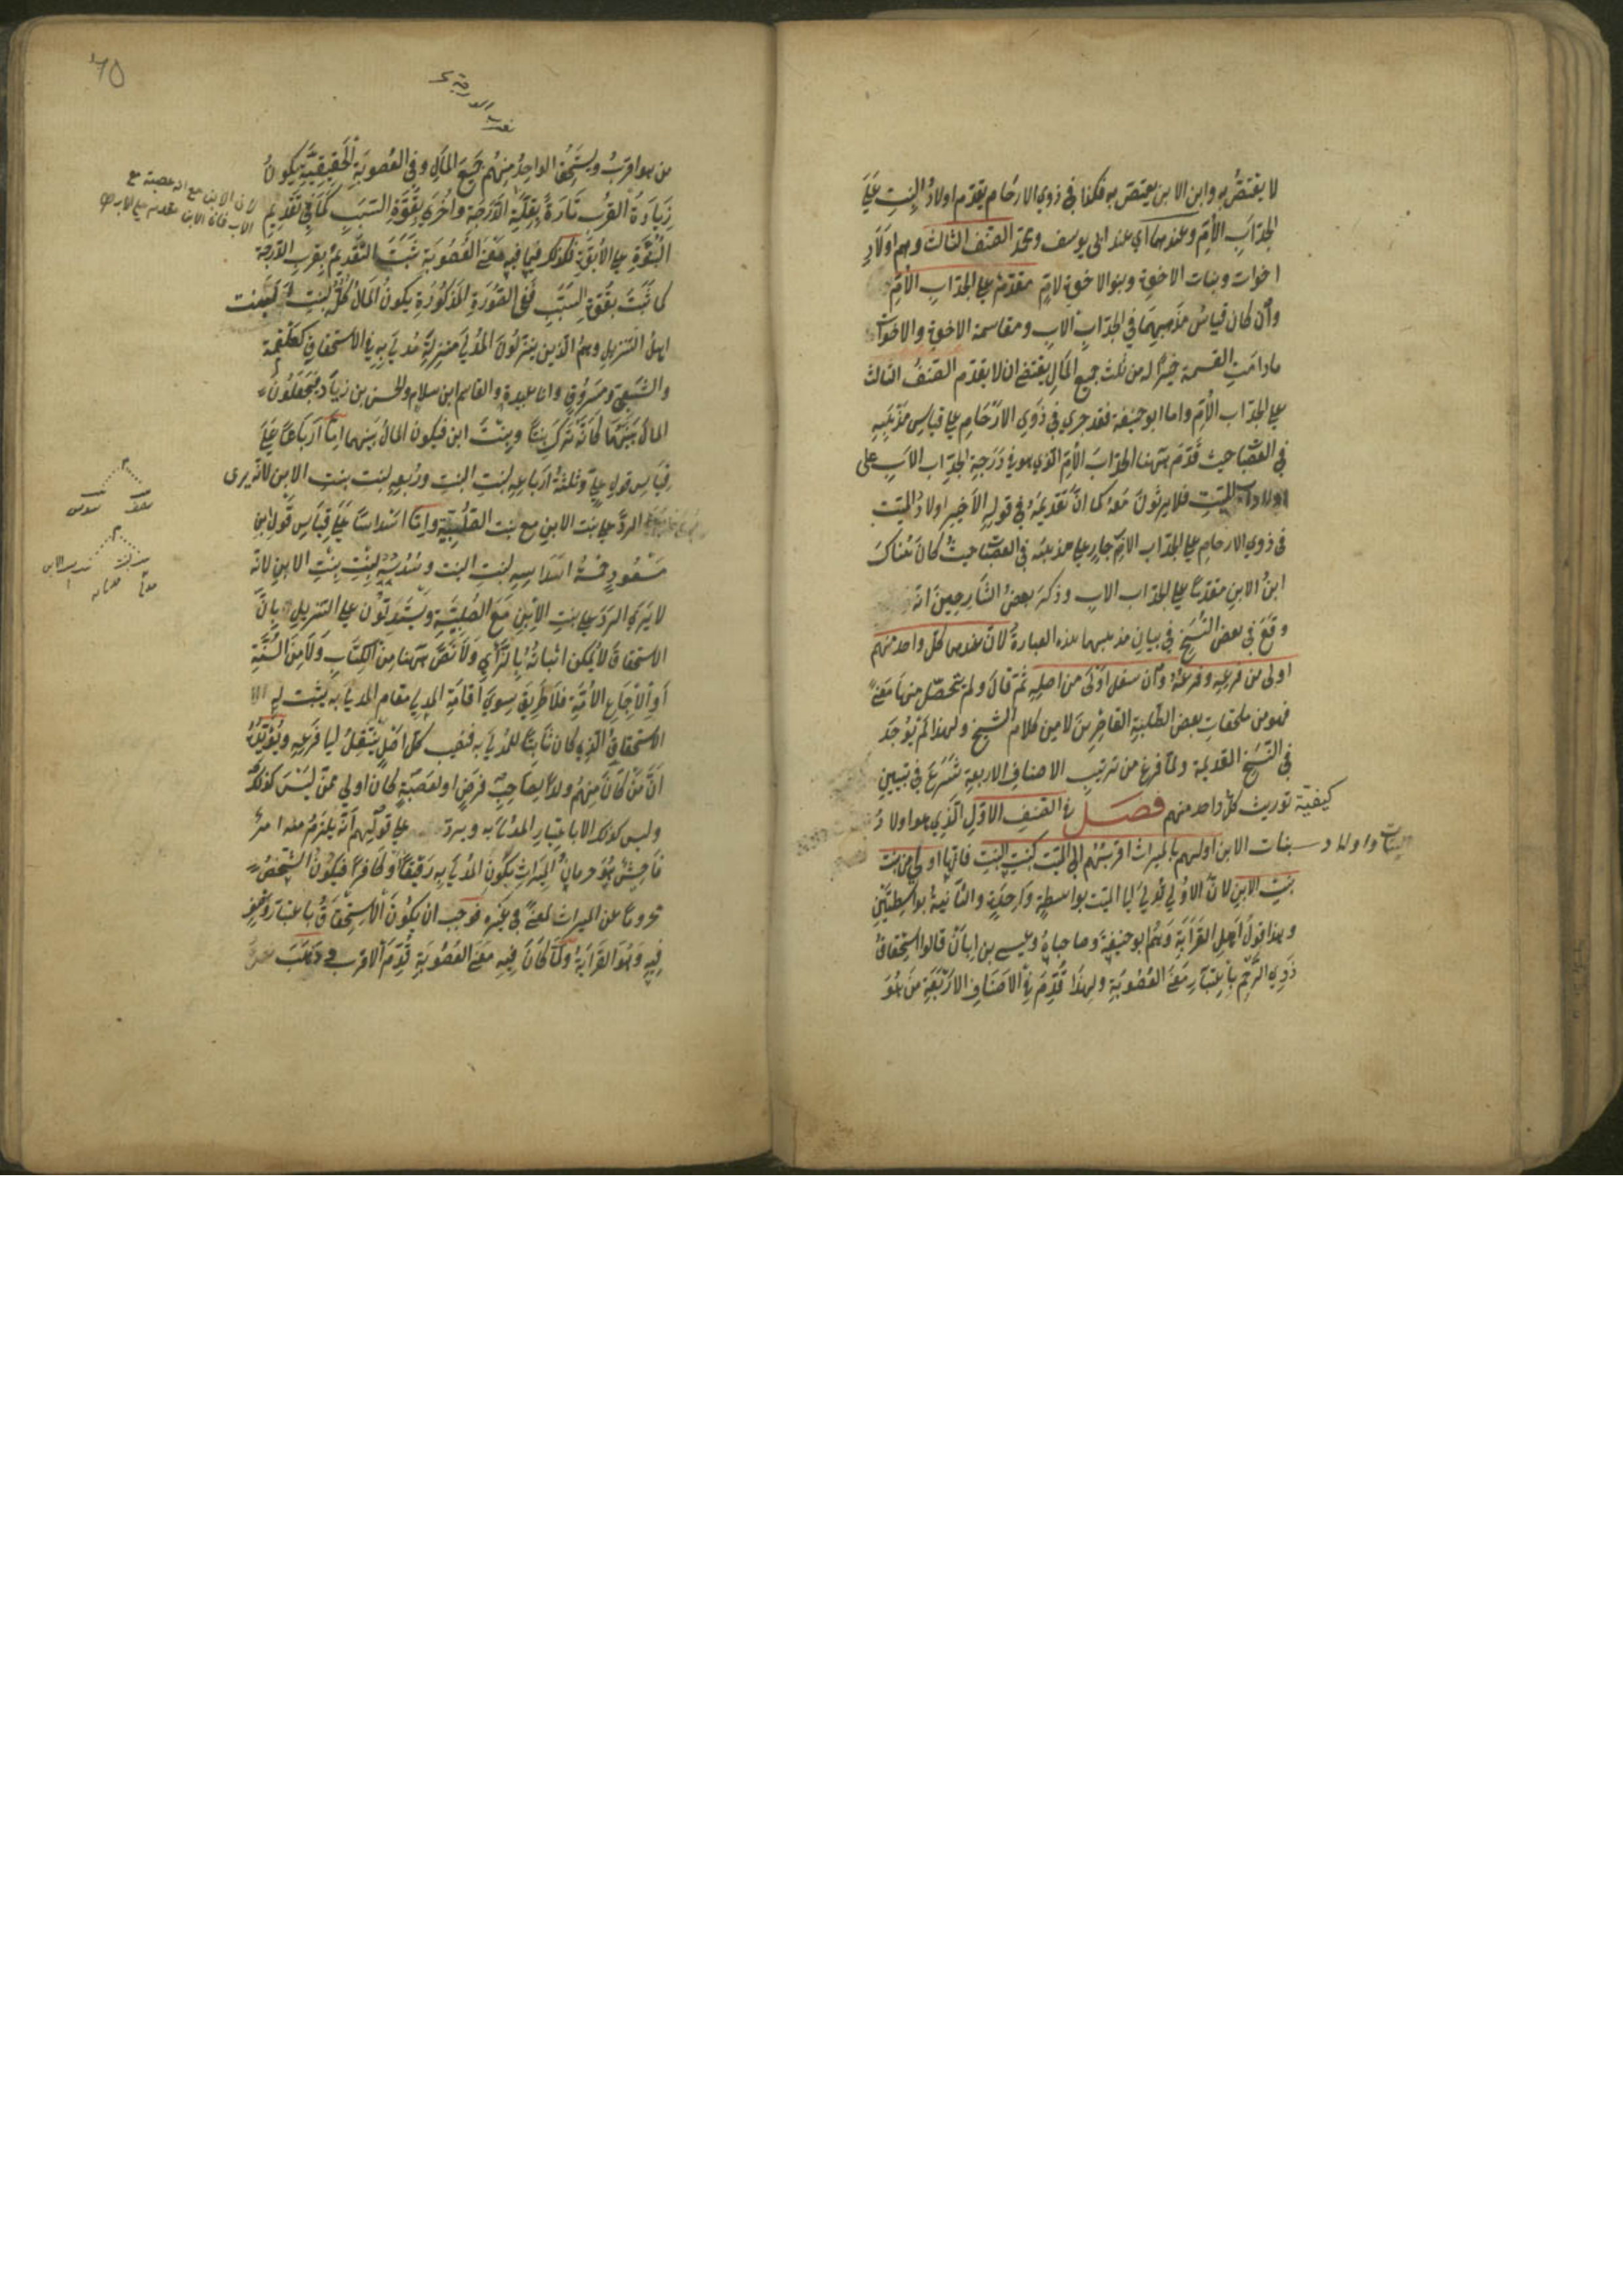 لا يعتصّ به وابن الابن يعتصّ به فكذا في ذوي الارحام يقدّم اولادُ البنتِ عَلَى
الجدّ ابِ الأُمِّ وعندهما اي عند ابي يوسف ومحمّد الصّنف الثالث وهم اولَادُ
اخوات وبنات الاخوة وبنو الاخوة لامٍّ مقدّمةٌ على الجدّ ابِ الأُمِّ
وانْ كان قياسُ مذهبِهِمَا في الجدّ ابِ الابِ ومقاسمة الاخوةِ والاخوات
مادامَتِ القسمة خيرًا له من ثلث جميع المَالِ يقتضى ان لا يقدّم الصّنفُ الثالث
على الجدّ اب الأُمِّ واما ابو حنيفة فقد جرى في ذَوِي الارْحَامِ على قياسِ مَذْهَبِهِ
في العصبات حيث قَدَّمَ هٰهنا الجدّ ابَ الأُمِّ الّذي هو في دَرَجةِ الجدِّ اب الابِ على
اولاد اب الميّتِ فلا يرثونَ مَعَهُ كما انّ تَقْدِيمَهُ في قولِهِ الأخير اولادُ الميّت
في ذوي الارحامِ على الجدّ اب الامِّ جارٍ على مذهبه في العصبات حيثُ كانَ هُنَاكَ
ابنُ الابنِ مقدّمًا على الجدّ اب الاب وذكرَ بعضُ الشّارحِينَ انه
وقَعَ في بعض النُّسَخِ في بيانِ مذهبهما هذه العبارةُ لانّ عندهما كلّ واحد منهم
اولى من فرعِهِ وفرعُهُ وان سفل اوْلى من اصلِهِ ثمّ قالَ ولم يتحصّل منها مَعْنًى
فهو من ملحقاتِ بعض الطّلبةِ القاصِرِينَ لا من كلام الشّيخ ولهذا لَمْ يُوجَدْ
في النّسَخِ القديمة ولمّا فرغ من ترتيبِ الاصنافِ الاربعةِ شَرَعَ في تبيينِ
كيفيّة توريث كلّ واحد منهم فصل في الصّنفِ الاوّلِ الّذي هو اولادُ
البنات واولاد بنات الابن اولٰيهم بالميراث اقربهُم الى الميّت كبنتِ البنتِ فانّها اولى من بنت
بنتِ الابنِ لانّ الاولى تُدْلِي الى الميّت بواسطةٍ واحدةٍ والثّانيةَ بواسِطَتَيْنِ
وهذا قولُ اهلِ القَرَابَةِ وهُمْ ابو حنيفةَ وصاحباهُ وعيسى بن ابانْ قالوا استحقاقُ
ذَوِي الرّحِمِ باعتبارِ مَعْنَى العُصُوبَةِ ولهذَا قُدِّمَ في الاصنافِ الاربَعةِ مَنْ هُوَ
٦٥
من هو اقربُ ويستحقّ الواحدُ منهُم جَمِيعَ المالِ وفي العُصوبةِ الحَقِيقِيَّةِ يكونُ
زِيَادَةُ القُرْبِ تَارَةً بِقِلَّةِ الدّرجَةِ واُخْرَى بقُوّةِ السَّبَبِ كمَا في تَقْدِيمِ
لانّ الابن مع انه عصبة مع
الاب فان الابن مقدم على الاب
البُنُوّةِ على الأُبُوّةِ فكذلك فيما فيه معْنَى العُصُوبَةِ ثَبَتَ التّقْدِيمُ بقربِ الدّرجة
كما ثَبَتَ بقوّةِ السّبَبِ فَفِي الصُّورَةِ المَذكُورَةِ يكونُ المالُ كُلُّهُ لبنتِ البنت
اهلُ التّنزيلِ وهمُ الّذين ينزّلونَ المُدْلِيَ منزِلَةَ مُدلًى بِهِ في الاستحقاقِ كعَلْقَمة
والشّعبيّ ومسروقٍ وابا عبيدة والقاسم ابن سلام والحسن بن زيادٍ يَجْعَلُونَ
المالَ بَيْنَهُمَا كأنّه تركَ بنتًا وبنتَ ابن فيكون المالُ بَيْنهما امّا ارْبَاعًا عَلَى
قياسِ قولِ عليٍّ وثلثةُ ارْبَاعِهِ لبنتِ البنتِ ورُبعهِ لبنت بنتِ الابنِ لانّه يرى
الردَّ على بنت الابنِ مع بنت الصّلبيّة وامّا اسْدَاسًا عَلَى قِيَاسِ قَوْلِ ابنِ
مسعودٍ خمسةُ اسْدَاسِهِ لبنتِ البنت وسُدُسُهُ لِبِنْتِ بِنْتِ الابنِ لانّه
لا يَرى الرَدَّ على بنتِ الابْنِ مَعَ الصُّلبيّةِ ويَسْتَدِلُّونَ على التنزيلِ بِانَّ
الاستحقاقَ لا يُمكن اثباتُهُ بالرّأْيِ وَلَا نَصَّ هٰهنا مِنَ الكِتَابِ ولَا مِنَ السُّنّةِ
أوِ الاجْمَاعِ الأُمّةِ فلَا طَرِيقَ سِوَى اقامَةِ المدلي مقام المدلى به ليثبت له
الاستحقاقُ الّذي كان ثَابِتًا للمُدلى به فنصيب كلّ اصْلٍ ينتقلُ الى فرعِهِ ويُؤَيِّدُهُ
انّ مَنْ كانَ منهُم ولدًا لِصَاحِبِ فرضٍ او لعَصَبةٍ كان اولى مِمَّنْ لَيْسَ كذلكَ
وليس كذلك الا باعتبارِ المدلَى به ويردُّ على قولِهِم انّهُ يلزَمُ منه امرٌ
فَاحِشٌ هُوَ حرمانُ المِيرَاثِ بكَوْنِ المُدْلَى بِهِ رَقِيقًا او كَافِرًا فيكونُ الشّخْصُ
محرومًا عن الميراث لمعنًى في غيْرِهِ فوَجَب ان يكُونَ الاستحقاقُ باعتبار وَصْفٍ
فيهِ وَهُوَ القَرَابَةُ ولمّا كَانَ فيهِ معْنَى العُصُوبَةِ قُدِّمَ الاقرب